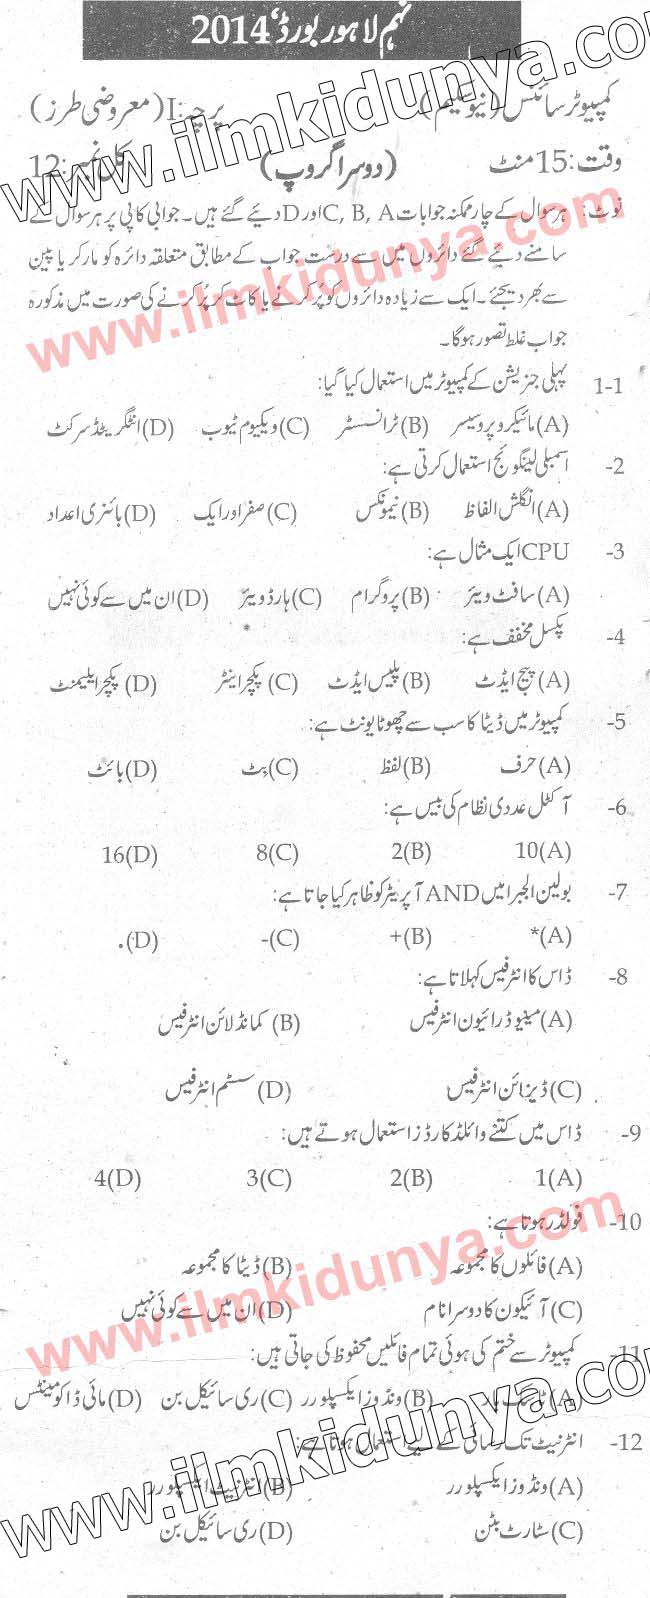 نہم لاہور بورڈ، 2014
کمپیوٹر سائنس (نیو سکیم) پرچہ:I (معروضی طرز)
وقت: 15 منٹ (دوسرا گروپ) کل نمبر: 12
نوٹ: ہر سوال کے چار ممکنہ جوابات C, B, A اور D دیئے گئے ہیں۔ جوابی کاپی پر ہر سوال کے
سامنے دیئے گئے دائروں میں سے درست جواب کے مطابق متعلقہ دائرہ کو مارکر یا پین
سے بھر دیجئے۔ ایک سے زیادہ دائروں کو پُر کرنے یا کاٹ کر پُر کرنے کی صورت میں مذکورہ
جواب غلط تصور ہوگا۔
1-1 پہلی جنریشن کے کمپیوٹر میں استعمال کیا گیا:
(A) مائیکرو پروسیسر (B) ٹرانسسٹر (C) ویکیوم ٹیوب (D) انٹگریٹڈ سرکٹ
2- اسمبلی لینگوئج استعمال کرتی ہے:
(A) انگلش الفاظ (B) نیمونکس (C) صفر اور ایک (D) بائنری اعداد
3- CPU ایک مثال ہے:
(A) سافٹ ویئر (B) پروگرام (C) ہارڈ ویئر (D) ان میں سے کوئی نہیں
4- پکسل مخفف ہے:
(A) پیج ایڈٹ (B) پلیس ایڈٹ (C) پکچر اینٹر (D) پکچر ایلیمنٹ
5- کمپیوٹر میں ڈیٹا کا سب سے چھوٹا یونٹ ہے:
(A) حرف (B) لفظ (C) بٹ (D) بائٹ
6- آکٹل عددی نظام کی بیس ہے:
(A) 10 (B) 2 (C) 8 (D) 16
7- بولین الجبرا میں AND آپریٹر کو ظاہر کیا جاتا ہے:
(A) * (B) + (C) - (D) .
8- ڈاس کا انٹرفیس کہلاتا ہے:
(A) مینیو ڈرائیون انٹرفیس (B) کمانڈ لائن انٹرفیس
(C) ڈیزائن انٹرفیس (D) سسٹم انٹرفیس
9- ڈاس میں کتنے وائلڈ کارڈز استعمال ہوتے ہیں:
(A) 1 (B) 2 (C) 3 (D) 4
10- فولڈر ہوتا ہے:
(A) فائلوں کا مجموعہ (B) ڈیٹا کا مجموعہ
(C) آئیکون کا دوسرا نام (D) ان میں سے کوئی نہیں
11- کمپیوٹر سے ختم کی ہوئی تمام فائلیں محفوظ کی جاتی ہیں:
(A) ٹاسک بار (B) ونڈوز ایکسپلورر (C) ری سائیکل بن (D) مائی ڈاکومینٹس
12- انٹرنیٹ تک رسائی کے لیے استعمال ہوتا ہے:
(A) ونڈوز ایکسپلورر (B) انٹرنیٹ ایکسپلورر
(C) سٹارٹ بٹن (D) ری سائیکل بن
www.ilmkidunya.com
www.ilmkidunya.com
www.ilmkidunya.com
www.ilmkidunya.com